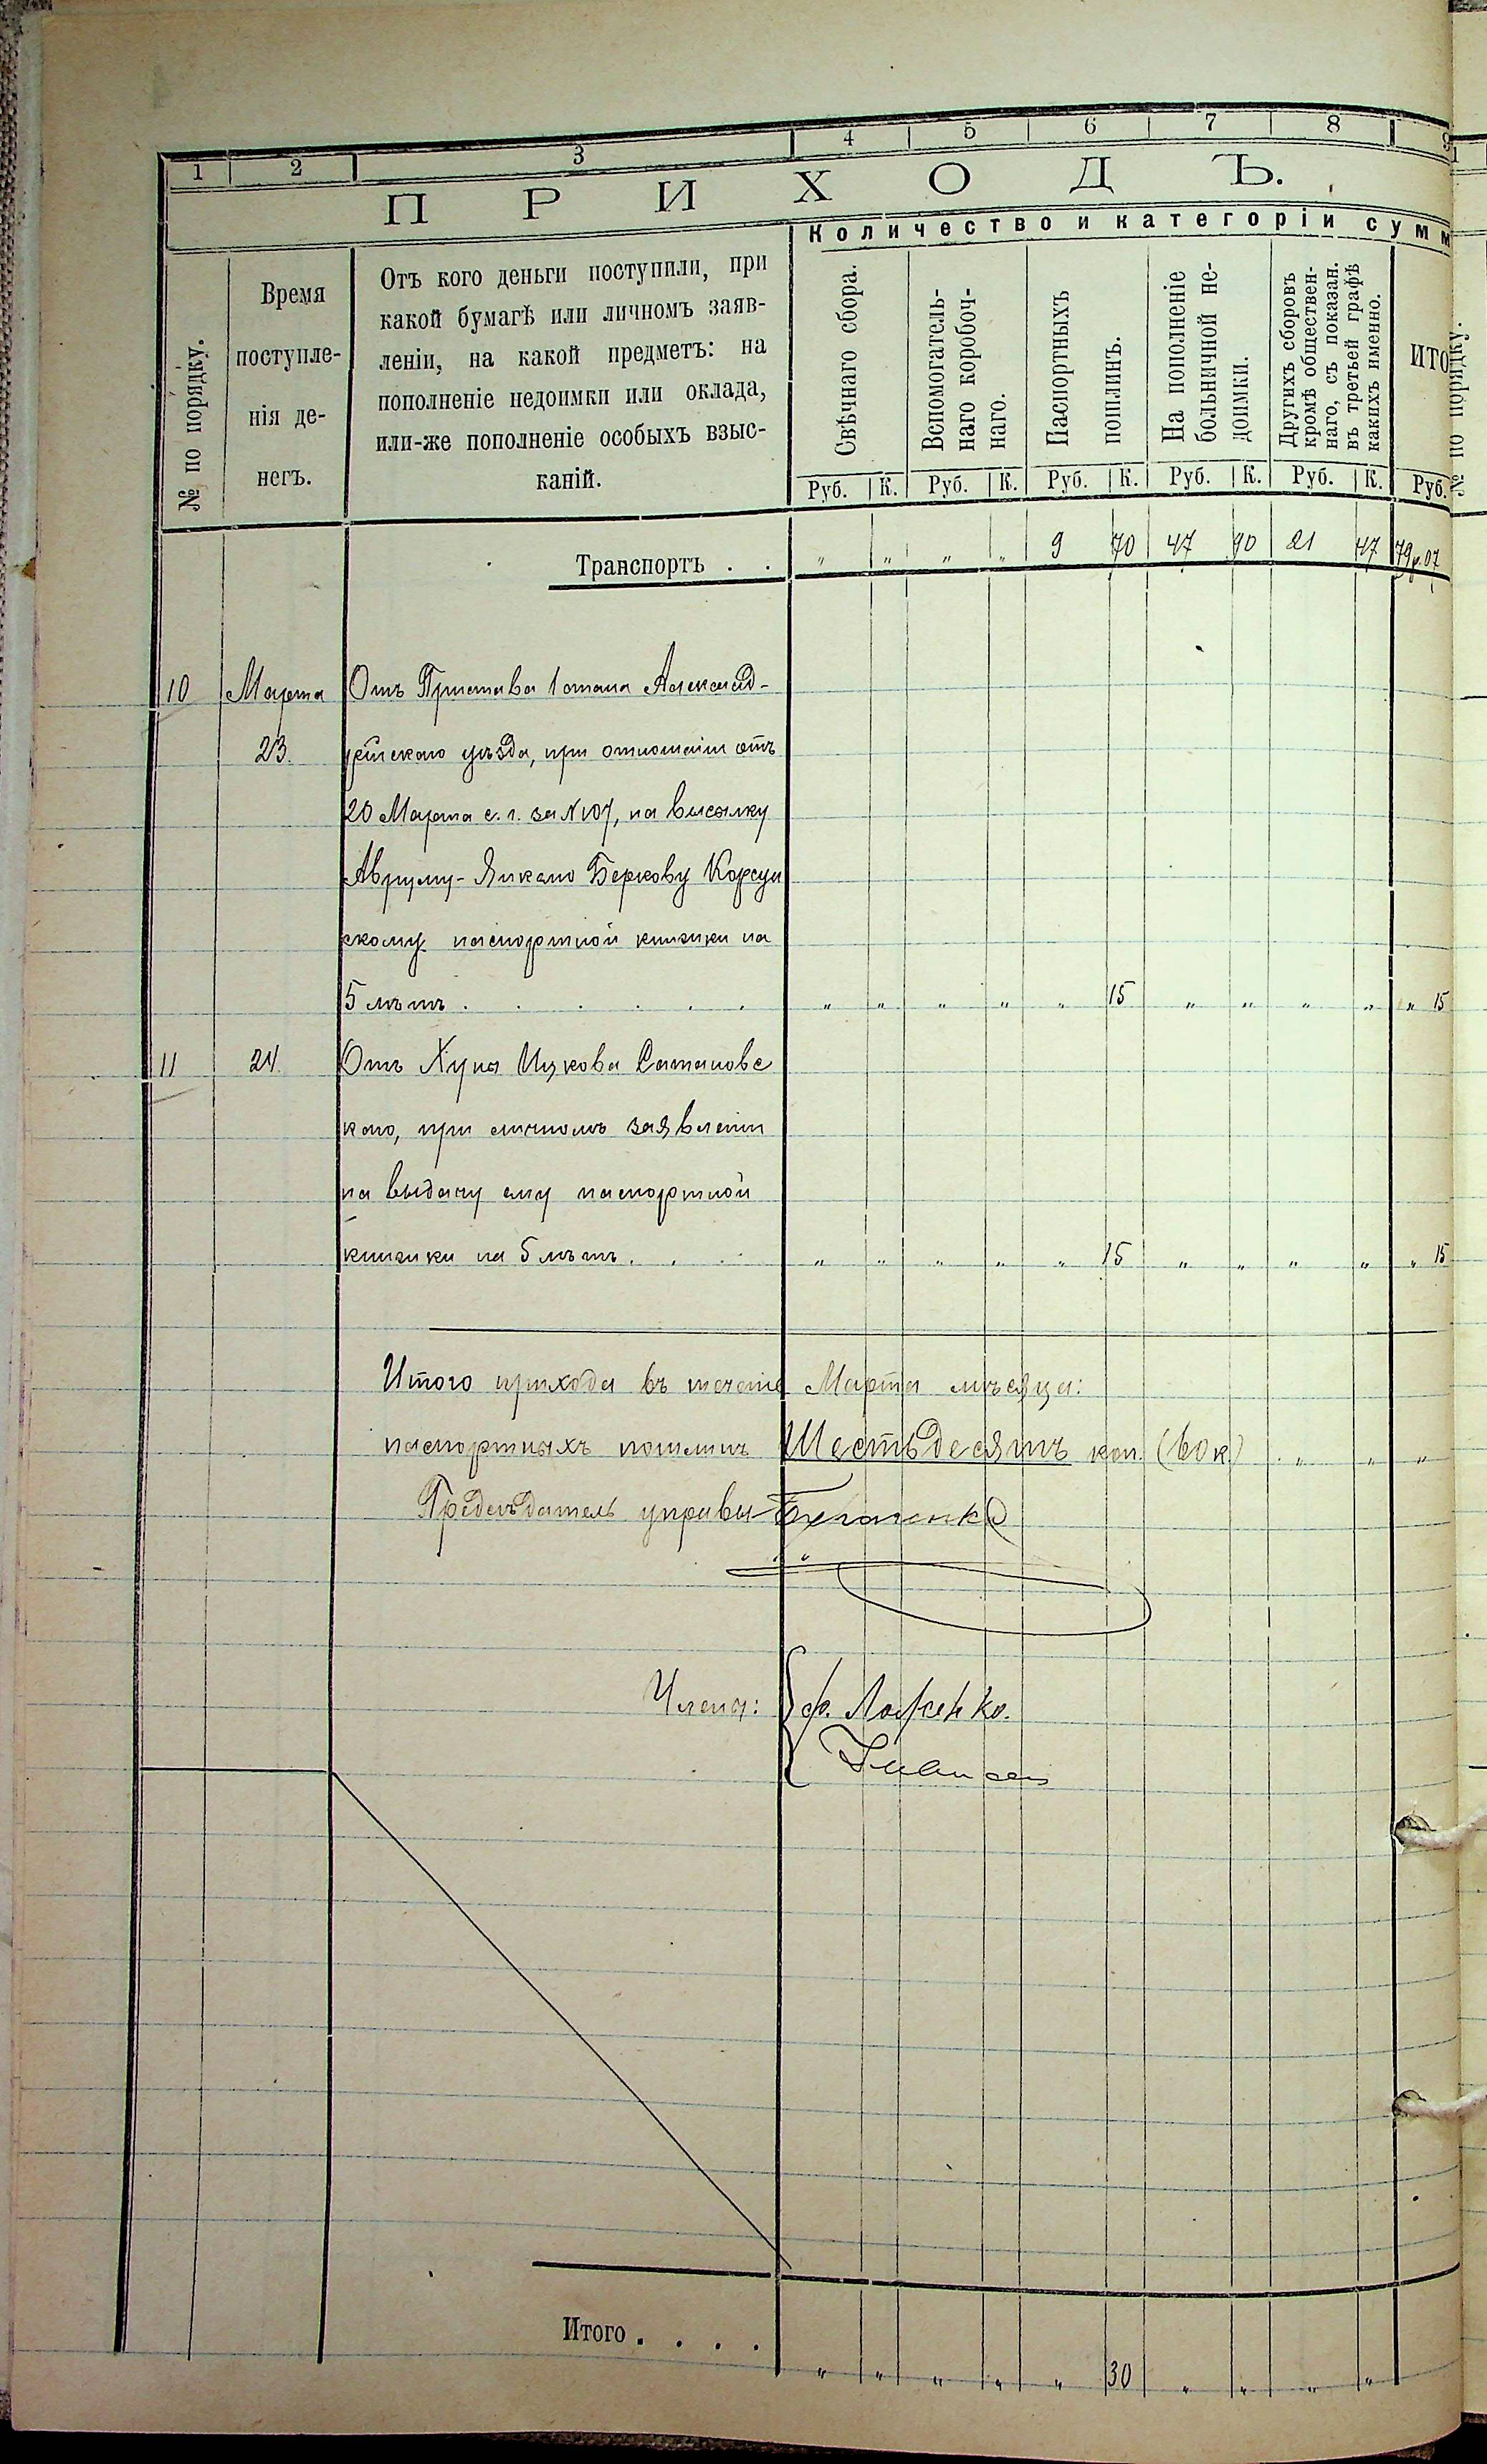 1 2 3 4 5 6 7 8 9
П Р И Х О Д Ъ.
Количество и категоріи сумм
№ по порядку.
Время
поступле-
нія де-
негъ.
Отъ кого деньги поступили, при
какой бумагѣ или личномъ заяв-
леніи, на какой предметъ: на
пополненіе недоимки или оклада,
или-же пополненіе особыхъ взыс-
каній.
Свѣчнаго сбора.
Вспомогатель-
наго коробоч-
наго.
Паспортныхъ
пошлинъ.
На пополненіе
больничной не-
доимки.
Другихъ сборовъ
кромѣ обществен-
наго, съ показан.
въ третьей графѣ
какихъ именно.
ИТО
№ по порядку.
Руб. К. Руб. К. Руб. К. Руб. К. Руб. К. Руб.
Транспортъ . . " " " " 9 70 47 90 21 47 79р.07
10 Марта Отъ Пристава 1 стана Александ-
23. рійскаго уѣзда, при отношеніи отъ
20 Марта с. г. за № 107, на высылку
Авруму-Янкелю Беркову Корсун
скому паспортной книжки на
5 лѣтъ . . . . . . " " " " " 15 " " " " " 15
11 24. Отъ Ицкова Сатановс
каго, при личномъ заявленіи
на выдачу ему паспортной
книжки на 5 лѣтъ . . . " " " " " 15 " " " " " 15
Итого прихода въ теченіе Марта мѣсяца:
паспортныхъ пошлинъ Шестьдесятъ коп. (60 к.) . " " "
Предсѣдатель управы
Члены: Ф. Ложенко.
Итого . . . . " " " " " 30 " " " "